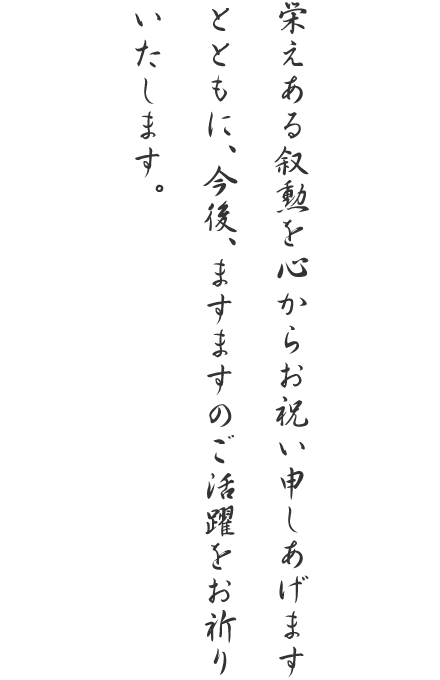 栄えある叙勲を心からお祝い申しあげます
とともに、今後、ますますのご活躍をお祈り
いたします。